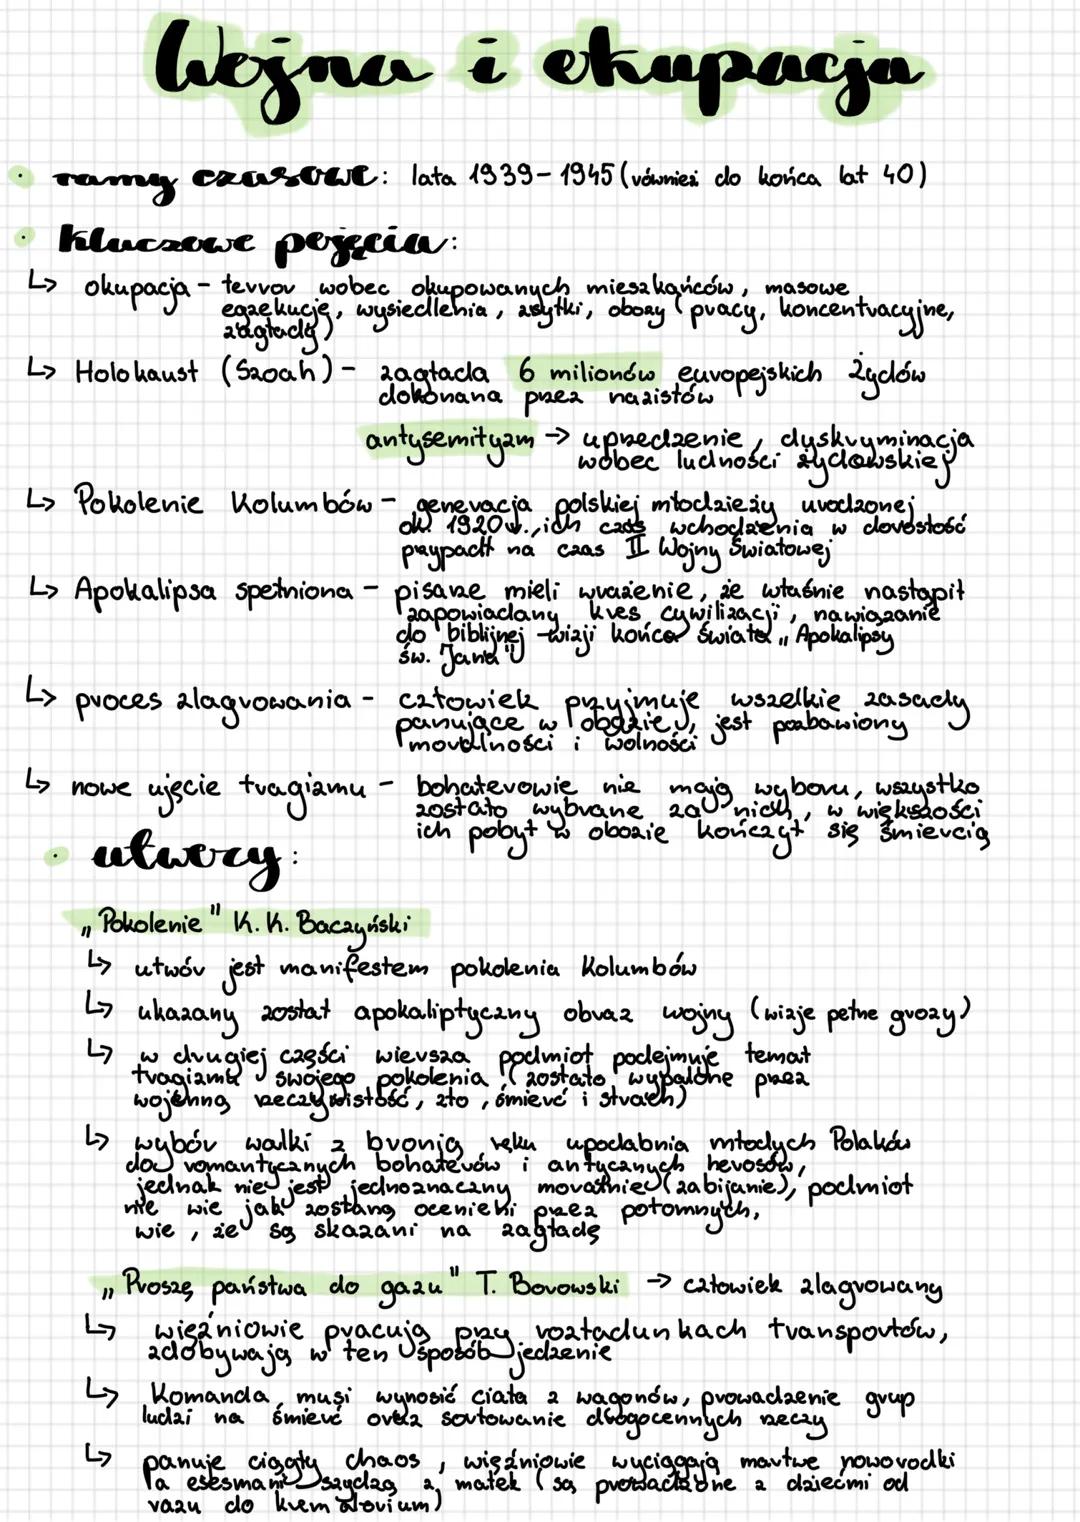 Wojna i okupacja
• ramy czasowe: lata 1939-1945 (również do końca lat 40)
• kluczowe pojęcia:
↳ okupacja - terror wobec okupowanych mieszkańców, masowe
egzekucje, wysiedlenia, zsyłki, obozy (pracy, koncentracyjne,
zagłady)
↳ Holokaust (Szoah) - zagłada 6 milionów europejskich Żydów
dokonana przez nazistów
antysemityzm → uprzedzenie, dyskryminacja
wobec ludności żydowskiej
↳ Pokolenie Kolumbów - generacja polskiej młodzieży urodzonej
ok. 1920 r., ich czas wchodzenia w dorosłość
przypadł na czas II Wojny Światowej
↳ Apokalipsa spełniona - pisarze mieli wrażenie, że właśnie nastąpił
zapowiadany kres cywilizacji, nawiązanie
do biblijnej wizji końca świata „Apokalipsy
św. Jana"
↳ proces zlagrowania - człowiek przyjmuje wszelkie zasady
panujące w obozie, jest pozbawiony
moralności i wolności
↳ nowe ujęcie tragizmu - bohaterowie nie mają wyboru, wszystko
zostało wybrane za nich, w większości
ich pobyt w obozie kończył się śmiercią
• utwory:
„Pokolenie" K. K. Baczyński
↳ utwór jest manifestem pokolenia Kolumbów
↳ ukazany został apokaliptyczny obraz wojny (wizje pełne grozy)
↳ w drugiej części wiersza podmiot podejmuje temat
tragizmu swojego pokolenia (zostało wypalone przez
wojenną rzeczywistość, zło, śmierć i strach)
↳ wybór walki z bronią w ręku upodabnia młodych Polaków
do romantycznych bohaterów i antycznych herosów,
jednak nie jest jednoznaczny moralnie (zabijanie), podmiot
nie wie jak zostaną ocenieni przez potomnych,
wie, że są skazani na zagładę
„Proszę państwa do gazu" T. Borowski → człowiek zlagrowany
↳ więźniowie pracują przy rozładunkach transportów,
zdobywają w ten sposób jedzenie
↳ Komanda musi wynosić ciała z wagonów, prowadzenie grup
ludzi na śmierć oraz sortowanie drogocennych rzeczy
↳ panuje ciągły chaos, więźniowie wyciągają martwe noworodki
a esesmani szydzą z matek (są prowadzone z dziećmi od
razu do krematorium)